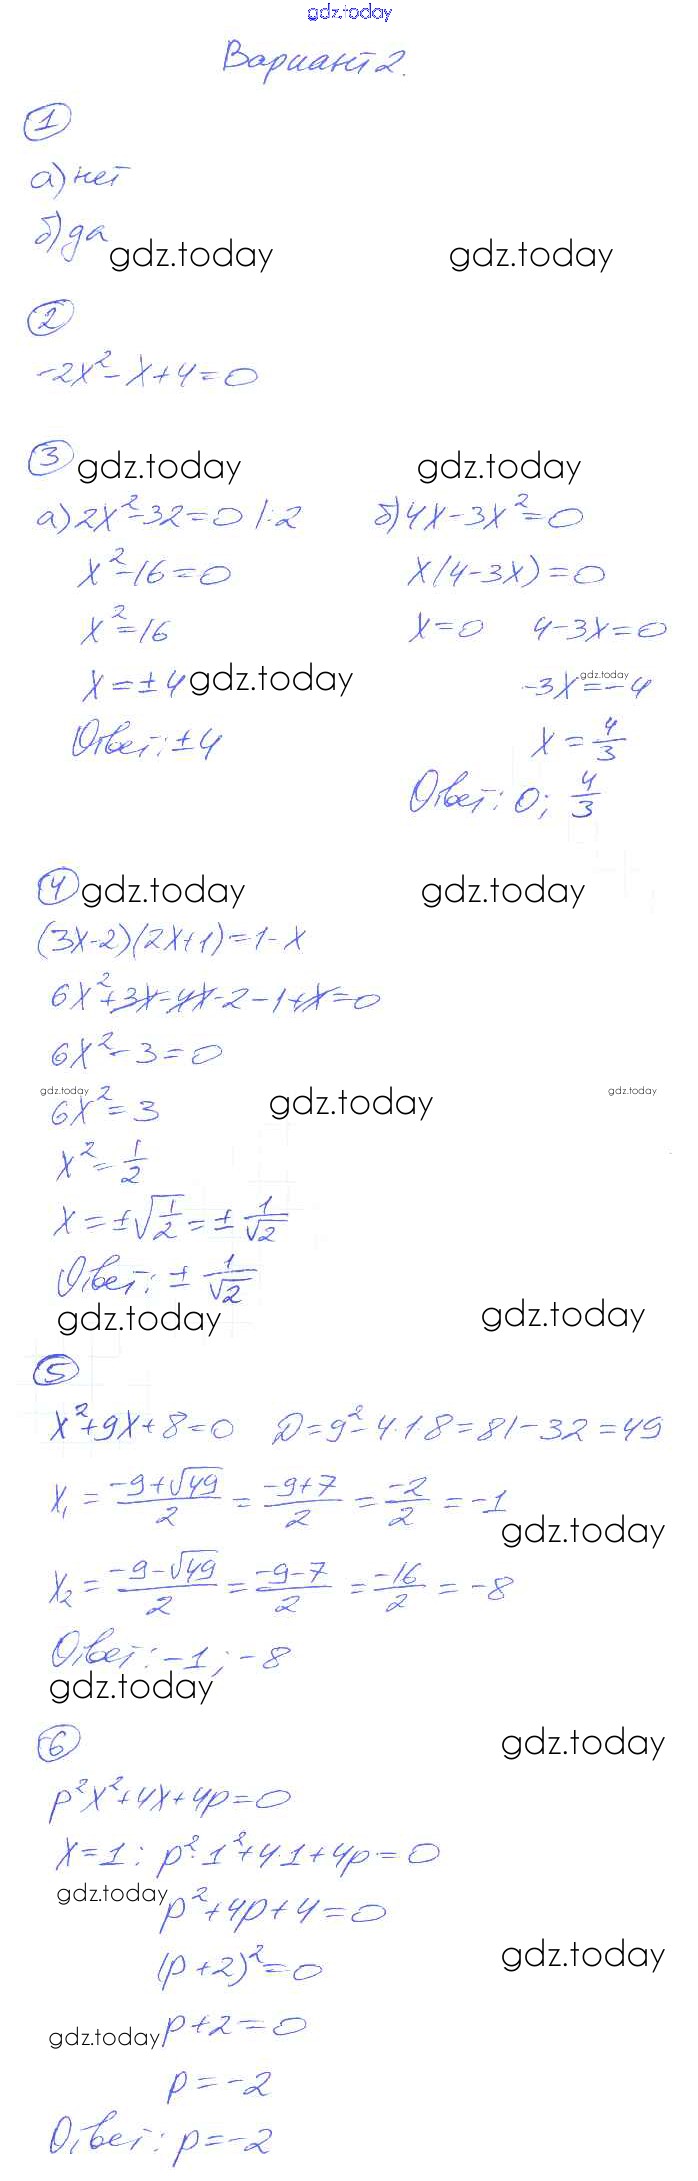 gdz.today
Вариант 2.
1
а) нет
б) да
gdz.today gdz.today
2
-2x²-x+4=0
3 gdz.today gdz.today
а) 2x²-32=0 |:2 б) 4x-3x²=0
x²-16=0 x(4-3x)=0
x²=16 x=0 4-3x=0
x=±4 gdz.today -3x=-4 gdz.today
Ответ: ±4 x=4/3
Ответ: 0; 4/3
4 gdz.today gdz.today
(3x-2)(2x+1)=1-x
6x²+3x-4x-2-1+x=0
6x²-3=0
gdz.today 6x²=3 gdz.today gdz.today
x²=1/2
x=±√1/2=±1/√2
Ответ: ±1/√2
gdz.today gdz.today
5
x²+9x+8=0 D=9²-4·1·8=81-32=49
x₁=(-9+√49)/2=(-9+7)/2=-2/2=-1
gdz.today
x₂=(-9-√49)/2=(-9-7)/2=-16/2=-8
Ответ: -1; -8
gdz.today
6 gdz.today
p²x²+4x+4p=0
x=1: p²·1²+4·1+4p=0
gdz.today p²+4p+4=0
(p+2)²=0 gdz.today
gdz.today p+2=0
p=-2
Ответ: p=-2